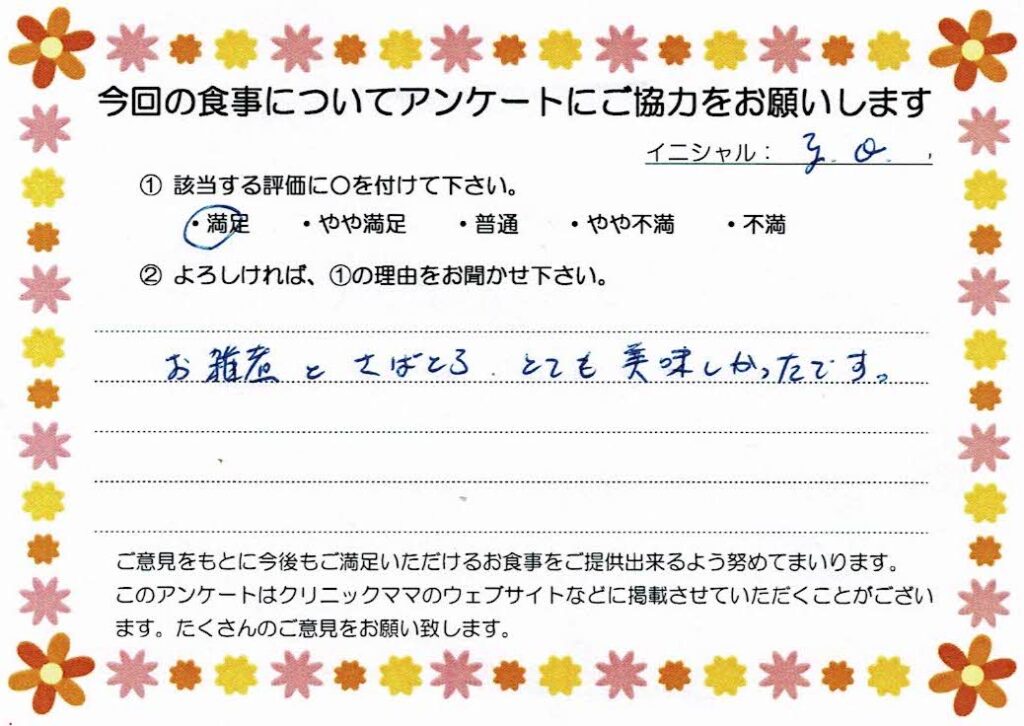 今回の食事についてアンケートにご協力をお願いします
イニシャル: y. O.
① 該当する評価に〇を付けて下さい。
・満足 ・やや満足 ・普通 ・やや不満 ・不満
② よろしければ、①の理由をお聞かせ下さい。
お雑煮とさばとろ、とても美味しかったです。
ご意見をもとに今後もご満足いただけるお食事をご提供出来るよう努めてまいります。
このアンケートはクリニックママのウェブサイトなどに掲載させていただくことがござい
ます。たくさんのご意見をお願い致します。